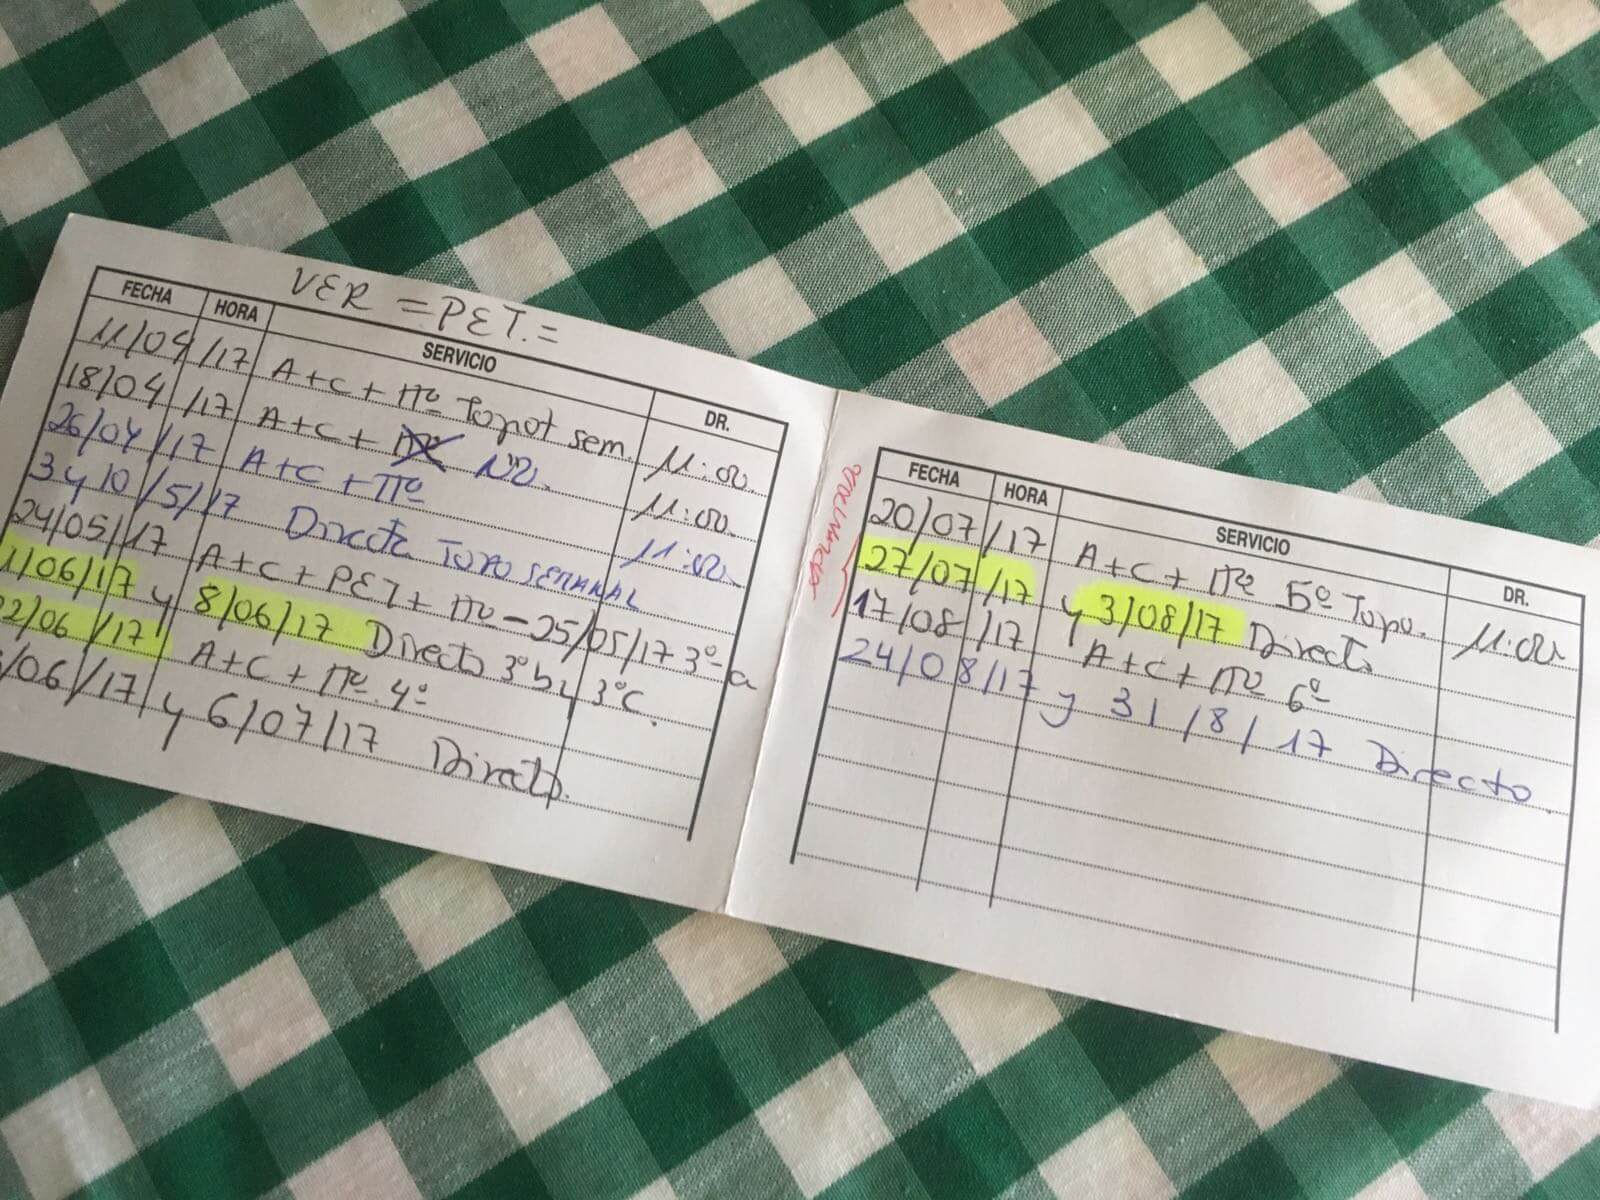 VER = PET. =
FECHA HORA SERVICIO DR.
11/04/17 A+C+ Tto Topot sem.
18/04/17 A+C+
26/04/17 A+C + Tto
3 y 10/5/17 Directa TOPO SEMANAL
24/05/17 A+C + PET + Tto - 25/05/17 3º a
1/06/17 y 8/06/17 Directo 3º b y 3º C.
22/06/17 A+C + Tto 4º
/06/17 y 6/07/17 Directo.
FECHA HORA SERVICIO DR.
20/07/17 A+C + Tto 5º Topo.
27/07/17 y 3/08/17 Directo
17/08/17 A+C + Tto 6º
24/08/17 y 31/8/17 Directo.